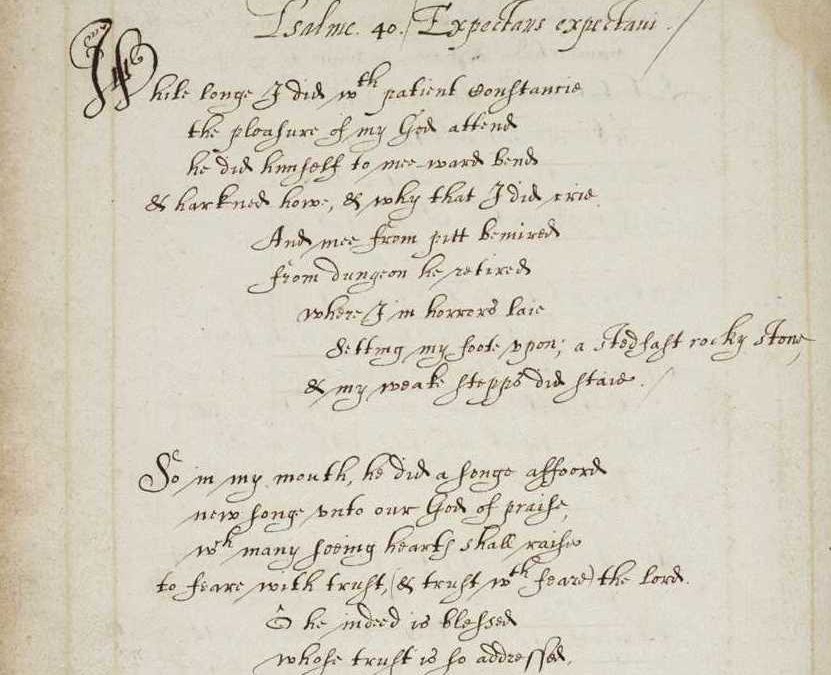 Psalme. 40. Expectans expectavi.
While longe I did wth patient constancie
the pleasure of my God attend
he did himself to mee-ward bend
& harkned howe, & why that I did crie.
And mee from pitt bemired
from dungeon he retired
where I in horrors laie
setting my foote vpon; a stedfast rocky stone,
& my weake stepps did staie.
So in my mouth, he did a songe affoord
new songe vnto our God of praise,
wch many seeing hearts shall raise
to feare with trust, (& trust wth feare) the lord.
O he indeed is blessed
whose trust is so addressed,